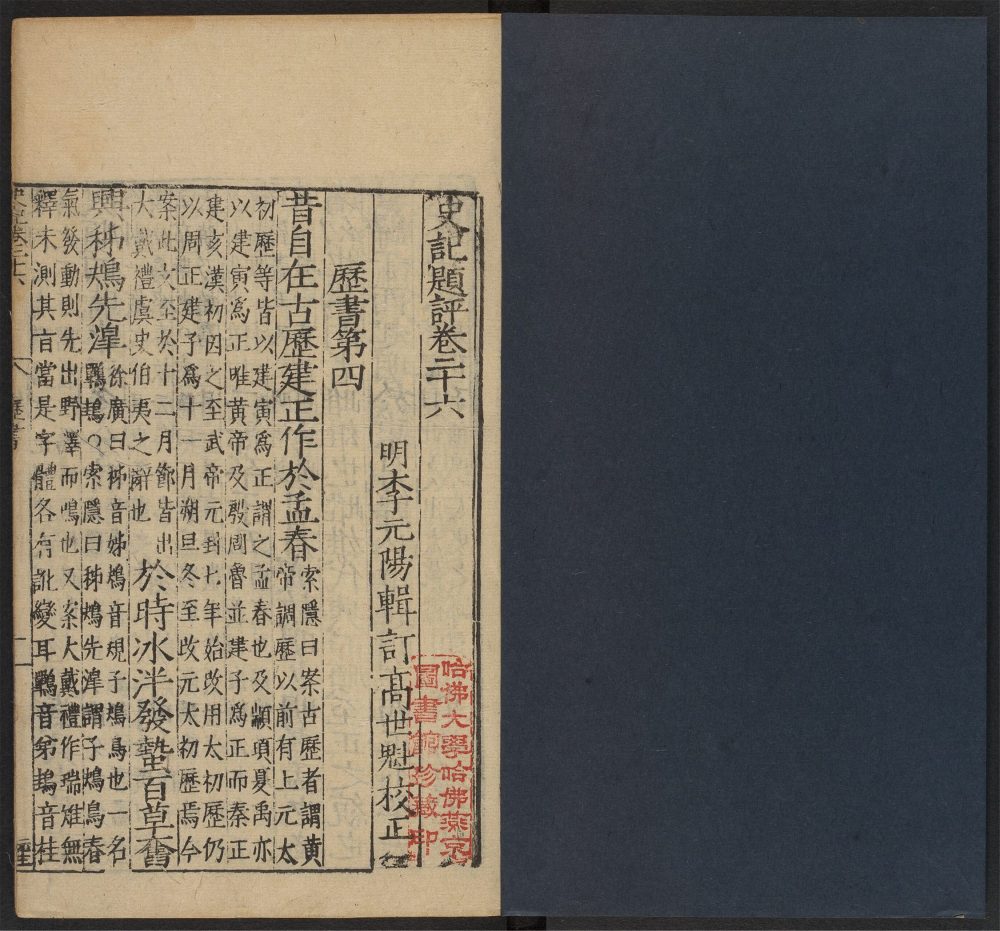 史記題評卷二十六
明李元陽輯訂高世魁校正
歷書第四
昔自在古歷建正作於孟春索隱曰案古歷者謂黃
帝調歷以前有上元太
初歷等皆以建寅爲正謂之孟春也及顓頊夏禹亦
以建寅爲正唯黃帝及殷周魯並建子爲正而秦正
建亥漢初因之至武帝元封七年始改用太初歷仍
以周正建子爲十一月朔旦冬至改元太初歷焉今
案此文至於十二月節皆出
大戴禮虞史伯夷之辭也
於時冰泮發蟄百草奮
興秭鳺先滜徐廣曰秭音姊鳺音規子鳺鳥也一名
鷤䳏○索隱曰秭鳺先滜謂子鳺鳥春
氣發動則先出野澤而鳴也又案大戴禮作瑞雉無
釋未測其旨當是字體各有訛變耳鷤音弟䳏音桂
史記卷二十六
歷書
一
哈佛大學哈佛燕京
圖書館珍藏印